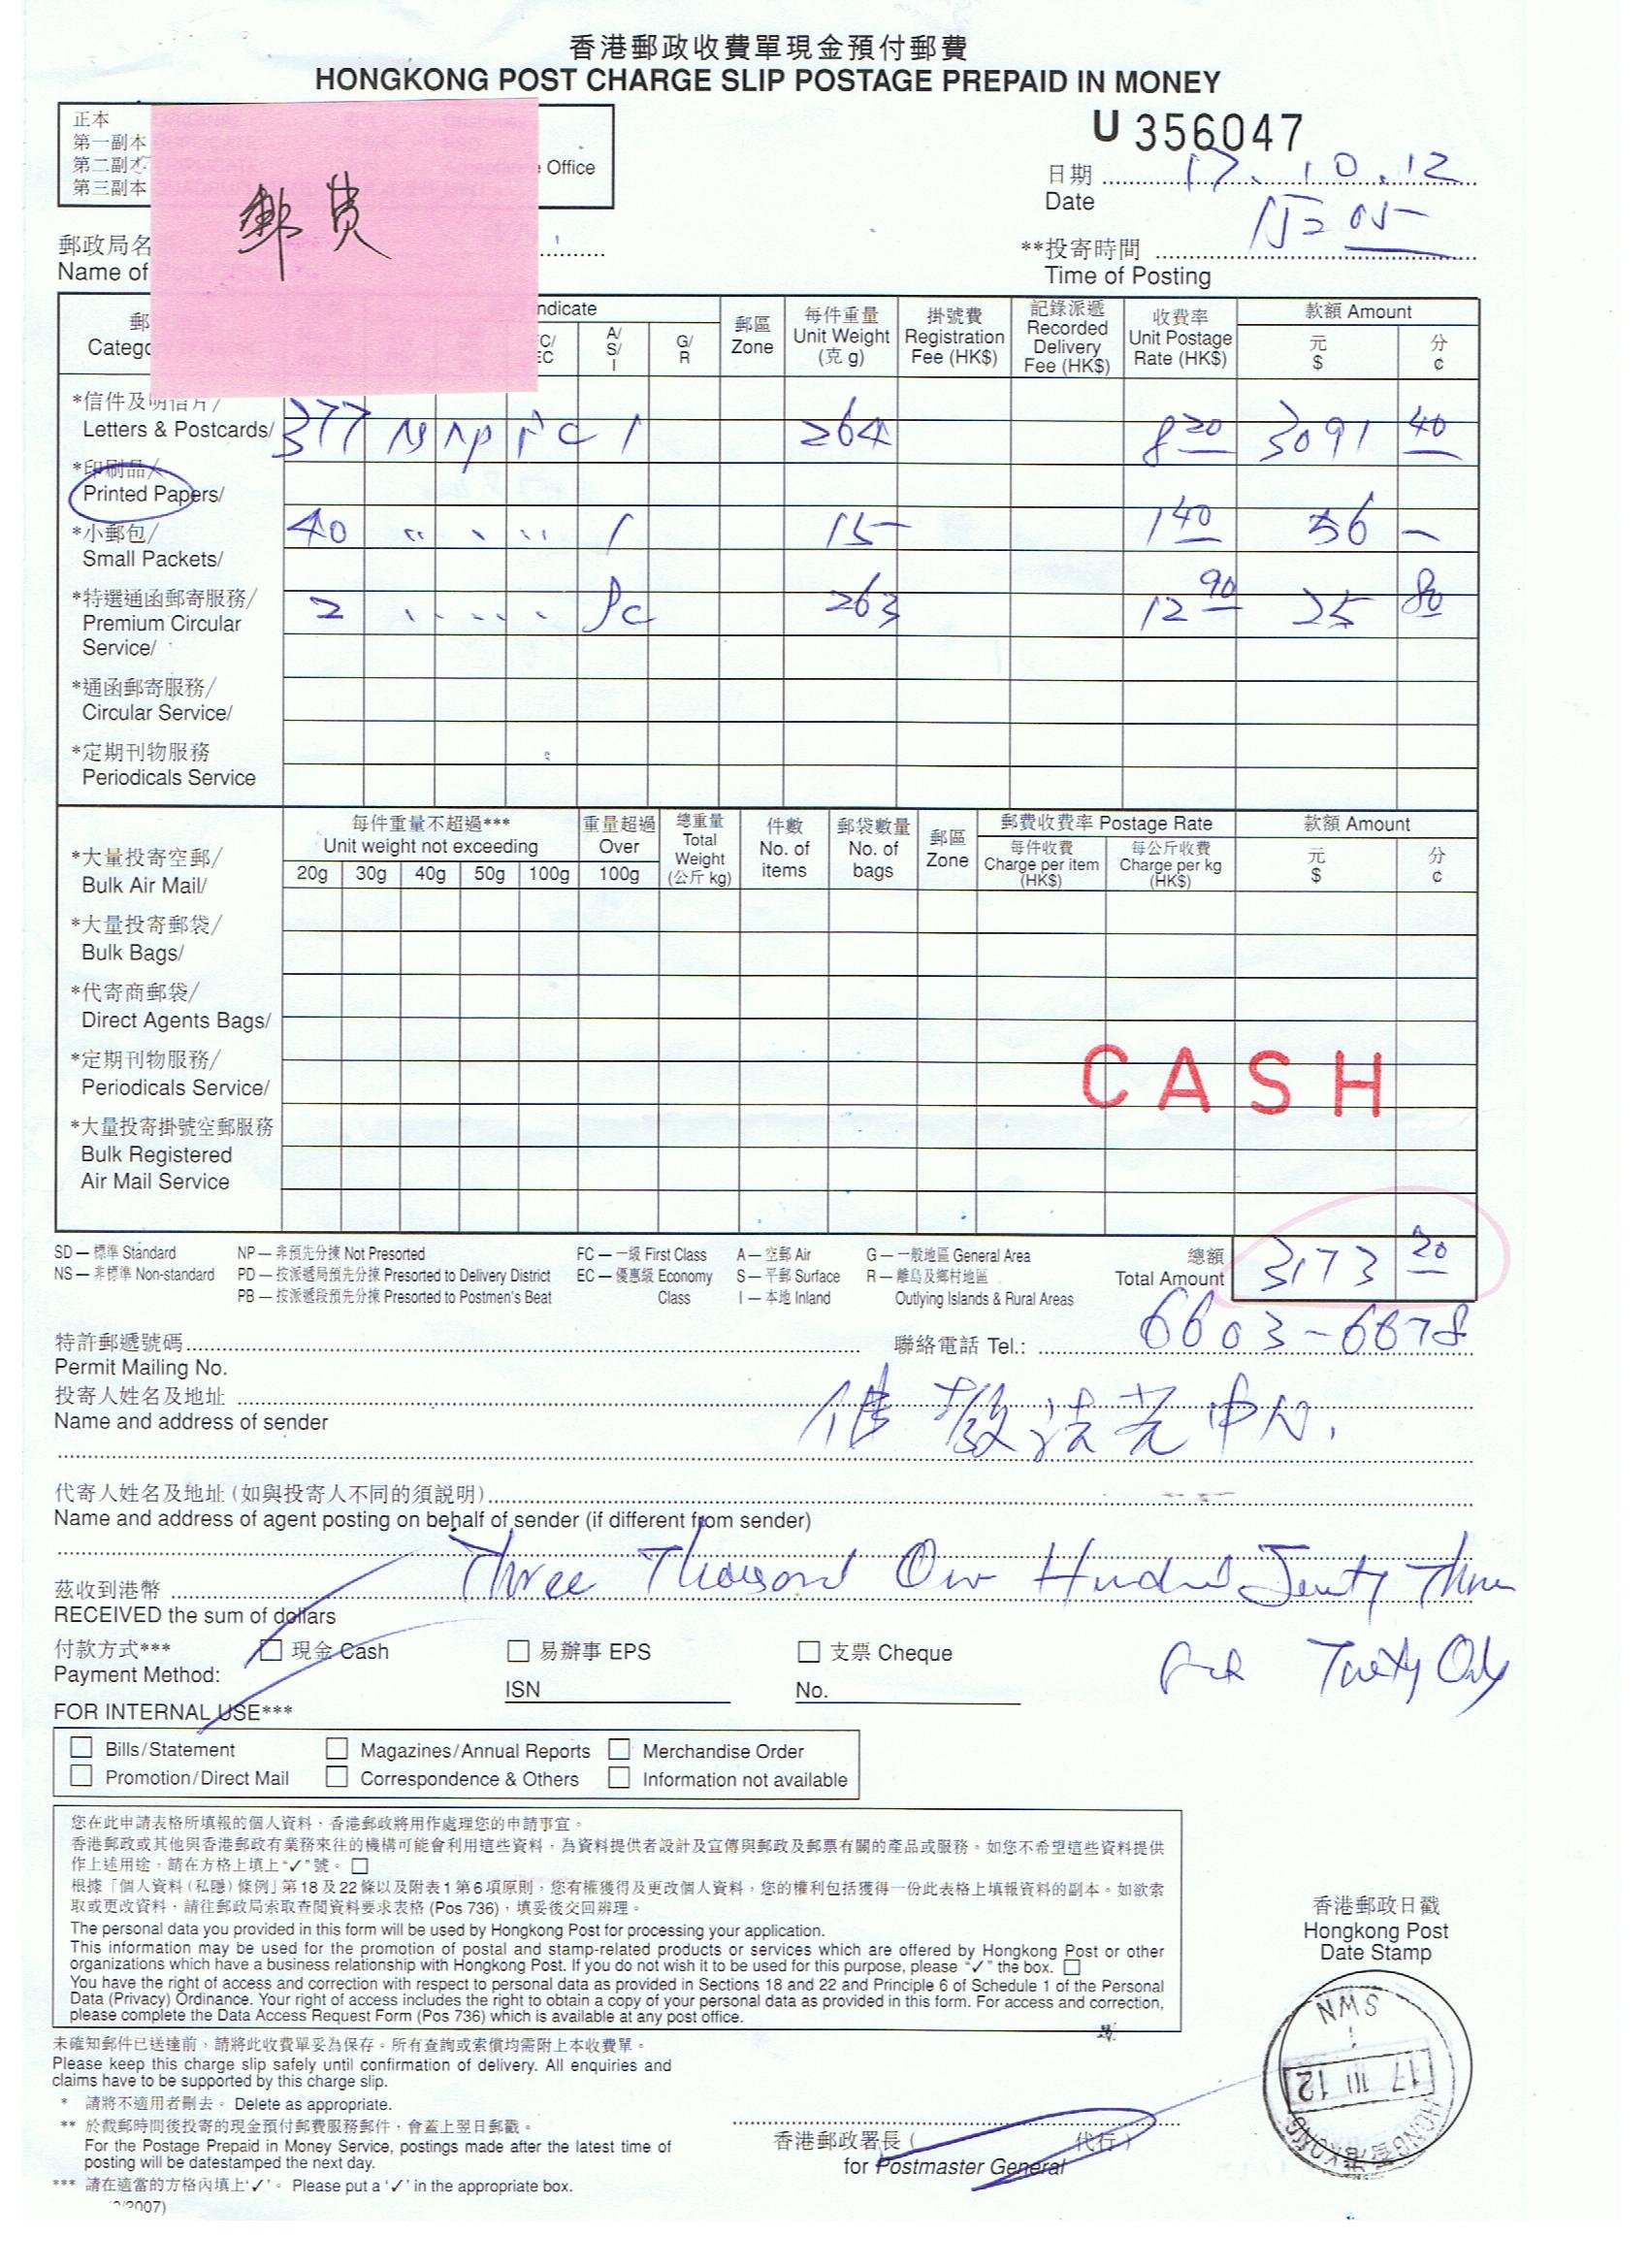 香港郵政收費單現金預付郵費
HONGKONG POST CHARGE SLIP POSTAGE PREPAID IN MONEY
正本
第一副本
第二副本
第三副本
Office
郵費
U 356047
日期 17.10.12
Date
**投寄時間 15=05
Time of Posting
郵政局名
Name of
郵
Catego
ndicate
C/
EC
A/
S/
I
G/
R
郵區
Zone
每件重量
Unit Weight
(克 g)
掛號費
Registration
Fee (HK$)
記錄派遞
Recorded
Delivery
Fee (HK$)
收費率
Unit Postage
Rate (HK$)
款額 Amount
元
$
分
¢
*信件及明信片/
Letters & Postcards/ 377 NS NP FC I 264 8 20 3091 40
*印刷品/
Printed Papers/
*小郵包/ 40 " " " I 15 1 40 56 —
Small Packets/
*特選通函郵寄服務/ 2 " " " Pc 263 12 90 25 80
Premium Circular
Service/
*通函郵寄服務/
Circular Service/
*定期刊物服務
Periodicals Service
每件重量不超過***
Unit weight not exceeding
20g 30g 40g 50g 100g
重量超過
Over
100g
總重量
Total
Weight
(公斤 kg)
件數
No. of
items
郵袋數量
No. of
bags
郵區
Zone
郵費收費率 Postage Rate
每件收費
Charge per item
(HK$)
每公斤收費
Charge per kg
(HK$)
款額 Amount
元
$
分
¢
*大量投寄空郵/
Bulk Air Mail/
*大量投寄郵袋/
Bulk Bags/
*代寄商郵袋/
Direct Agents Bags/
*定期刊物服務/
Periodicals Service/
CASH
*大量投寄掛號空郵服務
Bulk Registered
Air Mail Service
SD — 標準 Standard NP — 非預先分揀 Not Presorted FC — 一級 First Class A — 空郵 Air G — 一般地區 General Area
NS — 非標準 Non-standard PD — 按派遞局預先分揀 Presorted to Delivery District EC — 優惠級 Economy S — 平郵 Surface R — 離島及鄉村地區
PB — 按派遞段預先分揀 Presorted to Postmen's Beat Class I — 本地 Inland Outlying Islands & Rural Areas
總額
Total Amount 3173 20
特許郵遞號碼
Permit Mailing No.
聯絡電話 Tel.: 6603-6678
投寄人姓名及地址 佛教法光中心.
Name and address of sender
代寄人姓名及地址 (如與投寄人不同的須說明)
Name and address of agent posting on behalf of sender (if different from sender)
茲收到港幣 Three Thousand One Hundred Seventy Three
RECEIVED the sum of dollars
and Twenty Only
付款方式***
Payment Method:
現金 Cash
易辦事 EPS
ISN
支票 Cheque
No.
FOR INTERNAL USE***
Bills/Statement Magazines/Annual Reports Merchandise Order
Promotion/Direct Mail Correspondence & Others Information not available
您在此申請表格所填報的個人資料，香港郵政將用作處理您的申請事宜。
香港郵政或其他與香港郵政有業務來往的機構可能會利用這些資料，為資料提供者設計及宣傳與郵政及郵票有關的產品或服務。如您不希望這些資料提供
作上述用途，請在方格上填上“✓”號。
根據「個人資料(私隱)條例」第18及22條以及附表1第6項原則，您有權獲得及更改個人資料，您的權利包括獲得一份此表格上填報資料的副本。如欲索
取或更改資料，請往郵政局索取查閱資料要求表格 (Pos 736)，填妥後交回辨理。
The personal data you provided in this form will be used by Hongkong Post for processing your application.
This information may be used for the promotion of postal and stamp-related products or services which are offered by Hongkong Post or other
organizations which have a business relationship with Hongkong Post. If you do not wish it to be used for this purpose, please “✓” the box.
You have the right of access and correction with respect to personal data as provided in Sections 18 and 22 and Principle 6 of Schedule 1 of the Personal
Data (Privacy) Ordinance. Your right of access includes the right to obtain a copy of your personal data as provided in this form. For access and correction,
please complete the Data Access Request Form (Pos 736) which is available at any post office.
香港郵政日戳
Hongkong Post
Date Stamp
SWN
1
17 III 12
HONG KONG 香港
未確知郵件已送達前，請將此收費單妥為保存。所有查詢或索償均需附上本收費單。
Please keep this charge slip safely until confirmation of delivery. All enquiries and
claims have to be supported by this charge slip.
* 請將不適用者刪去。 Delete as appropriate.
** 於截郵時間後投寄的現金預付郵費服務郵件，會蓋上翌日郵戳。
For the Postage Prepaid in Money Service, postings made after the latest time of
posting will be datestamped the next day.
*** 請在適當的方格內填上‘✓’。 Please put a ‘✓’ in the appropriate box.
/2007)
香港郵政署長 ( 代行 )
for Postmaster General